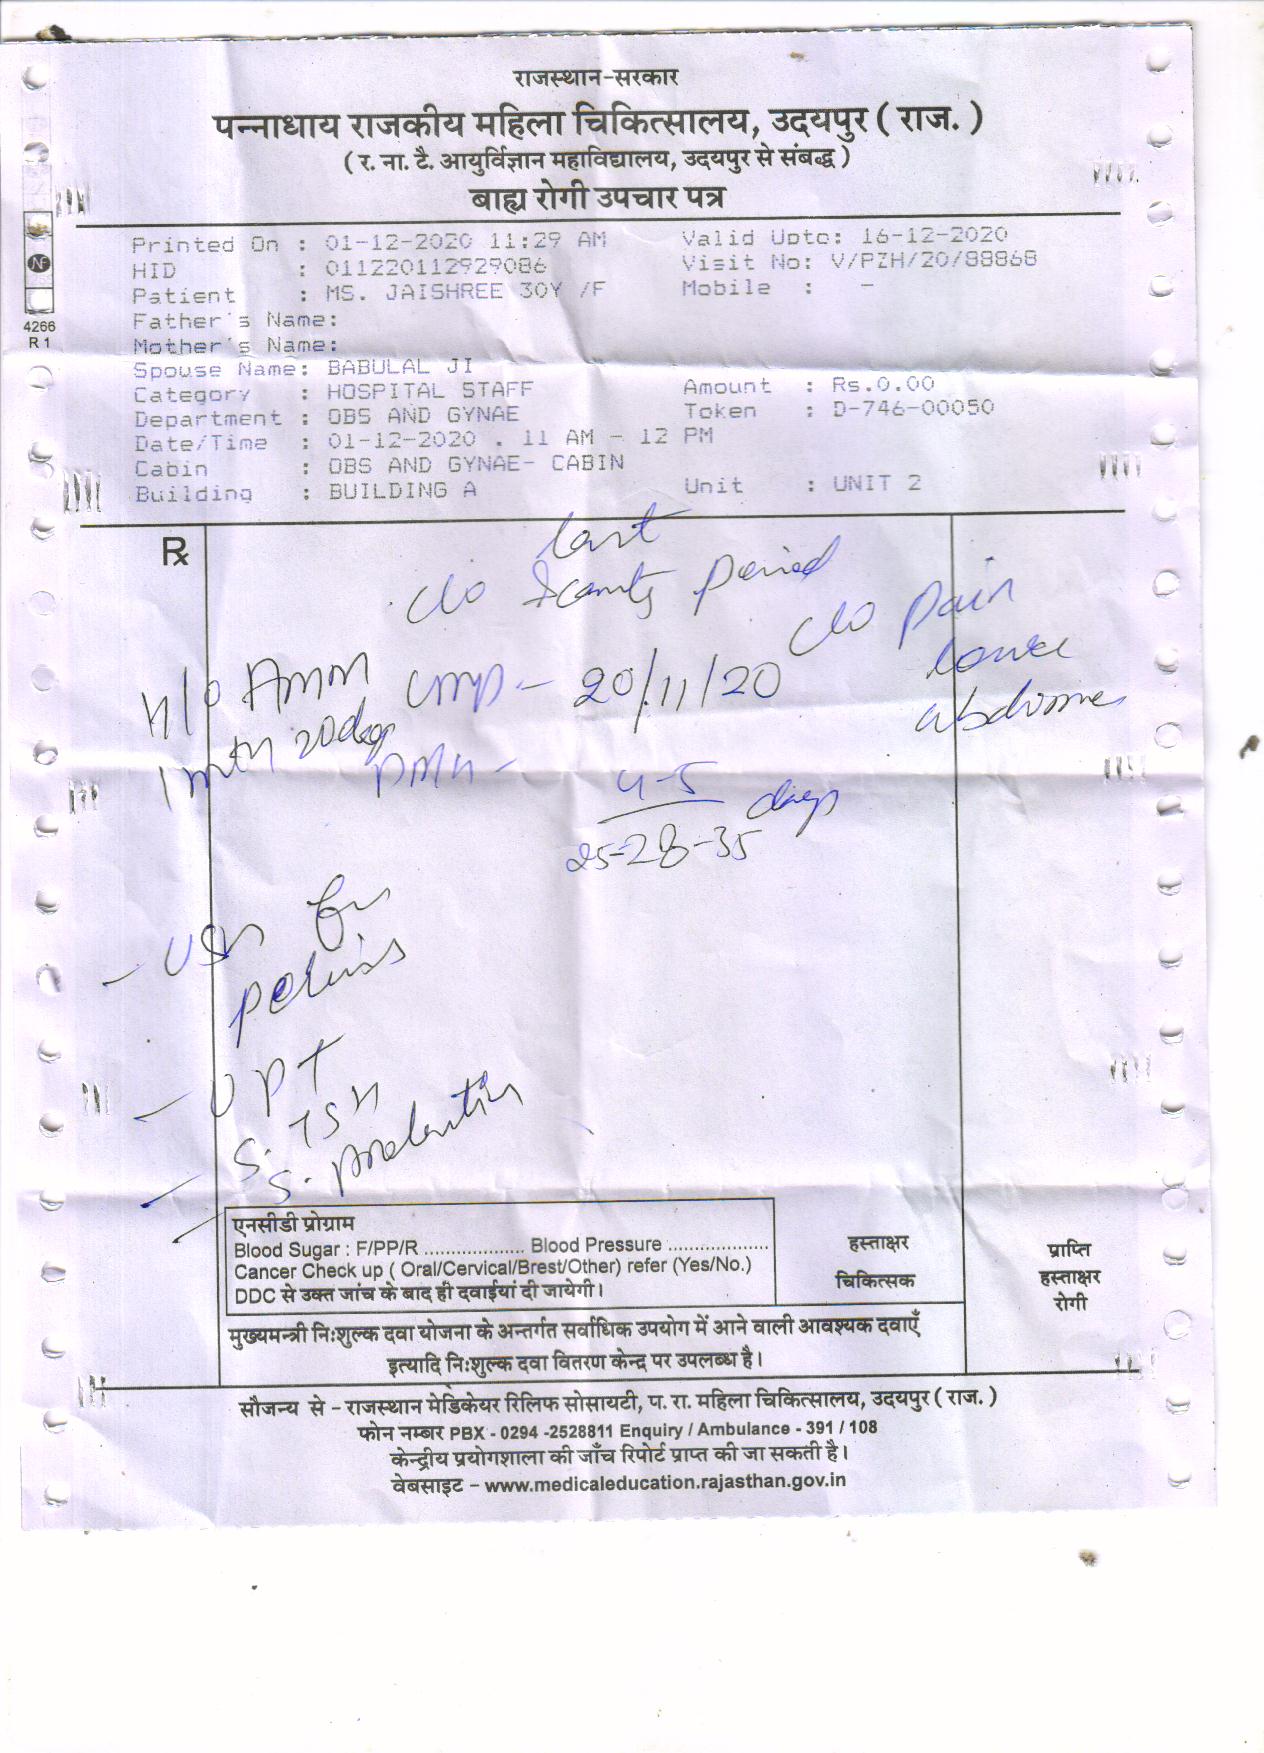 राजस्थान-सरकार
पन्नाधाय राजकीय महिला चिकित्सालय, उदयपुर ( राज. )
( र. ना. टै. आयुर्विज्ञान महाविद्यालय, उदयपुर से संबद्ध )
बाह्य रोगी उपचार पत्र
Printed On : 01-12-2020 11:29 AM Valid Upto: 16-12-2020
HID : 011220112929086 Visit No: V/PZH/20/88868
Patient : MS. JAISHREE 30Y /F Mobile : -
Father's Name:
Mother's Name:
Spouse Name: BABULAL JI
Category : HOSPITAL STAFF Amount : Rs.0.00
Department : OBS AND GYNAE Token : D-746-00050
Date/Time : 01-12-2020 . 11 AM - 12 PM
Cabin : OBS AND GYNAE- CABIN
Building : BUILDING A Unit : UNIT 2
NF
4266
R 1
Rx
last
c/o Scanty period
c/o pain
lower
abdomen
H/O
1 mth 20 days
LMP - 20/11/20
PMH -
4-5
days
25-28-35
- USG for
pelvis
- UPT
- S. TSH
- S. prolactin
एनसीडी प्रोग्राम
Blood Sugar : F/PP/R ................... Blood Pressure ...................
Cancer Check up ( Oral/Cervical/Brest/Other) refer (Yes/No.)
DDC से उक्त जांच के बाद ही दवाईयां दी जायेगी।
हस्ताक्षर
चिकित्सक
प्राप्ति
हस्ताक्षर
रोगी
मुख्यमन्त्री निःशुल्क दवा योजना के अन्तर्गत सर्वाधिक उपयोग में आने वाली आवश्यक दवाएँ
इत्यादि निःशुल्क दवा वितरण केन्द्र पर उपलब्ध है।
सौजन्य से - राजस्थान मेडिकेयर रिलिफ सोसायटी, प. रा. महिला चिकित्सालय, उदयपुर ( राज. )
फोन नम्बर PBX - 0294 -2528811 Enquiry / Ambulance - 391 / 108
केन्द्रीय प्रयोगशाला की जाँच रिपोर्ट प्राप्त की जा सकती है।
वेबसाइट - www.medicaleducation.rajasthan.gov.in